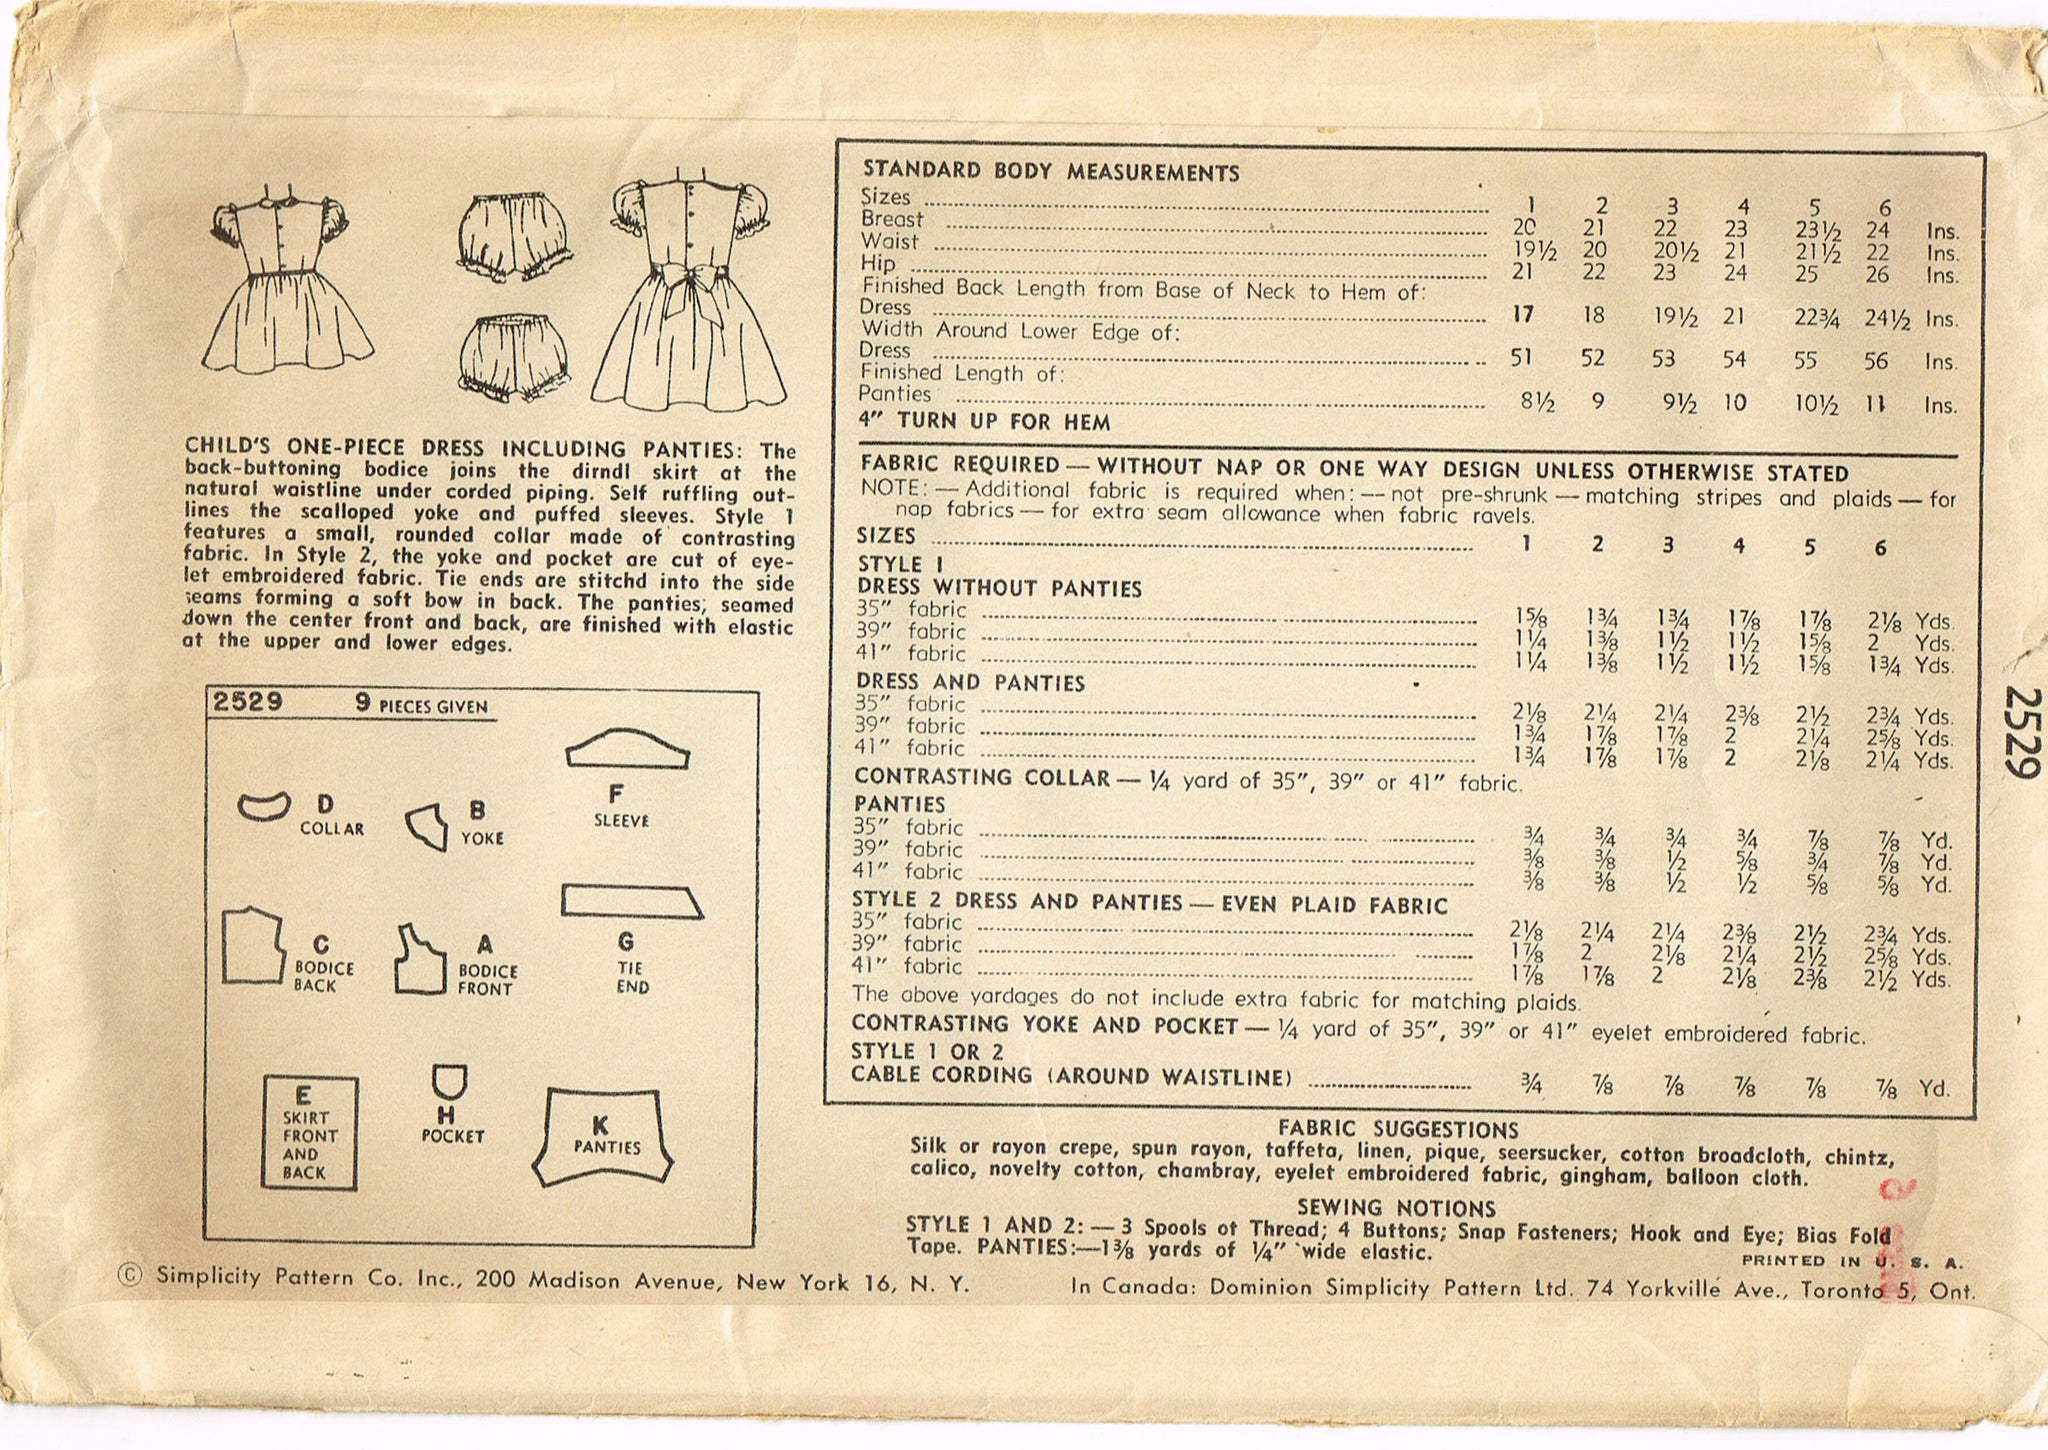 CHILD'S ONE-PIECE DRESS INCLUDING PANTIES: The
back-buttoning bodice joins the dirndl skirt at the
natural waistline under corded piping. Self ruffling out-
lines the scalloped yoke and puffed sleeves. Style 1
features a small, rounded collar made of contrasting
fabric. In Style 2, the yoke and pocket are cut of eye-
let embroidered fabric. Tie ends are stitchd into the side
seams forming a soft bow in back. The panties, seamed
down the center front and back, are finished with elastic
at the upper and lower edges.
2529 9 PIECES GIVEN
D
COLLAR
B
YOKE
F
SLEEVE
C
BODICE
BACK
A
BODICE
FRONT
G
TIE
END
E
SKIRT
FRONT
AND
BACK
H
POCKET
K
PANTIES
STANDARD BODY MEASUREMENTS
Sizes 1 2 3 4 5 6
Breast 20 21 22 23 23½ 24 Ins.
Waist 19½ 20 20½ 21 21½ 22 Ins.
Hip 21 22 23 24 25 26 Ins.
Finished Back Length from Base of Neck to Hem of:
Dress 17 18 19½ 21 22¾ 24½ Ins.
Width Around Lower Edge of:
Dress 51 52 53 54 55 56 Ins.
Finished Length of:
Panties 8½ 9 9½ 10 10½ 11 Ins.
4" TURN UP FOR HEM
FABRIC REQUIRED — WITHOUT NAP OR ONE WAY DESIGN UNLESS OTHERWISE STATED
NOTE: — Additional fabric is required when: — not pre-shrunk — matching stripes and plaids — for
nap fabrics — for extra seam allowance when fabric ravels.
SIZES 1 2 3 4 5 6
STYLE 1
DRESS WITHOUT PANTIES
35" fabric 1⅝ 1¾ 1¾ 1⅞ 1⅞ 2⅛ Yds.
39" fabric 1¼ 1⅜ 1½ 1½ 1⅝ 2 Yds.
41" fabric 1¼ 1⅜ 1½ 1½ 1⅝ 1¾ Yds.
DRESS AND PANTIES
35" fabric 2⅛ 2¼ 2¼ 2⅜ 2½ 2¾ Yds.
39" fabric 1¾ 1⅞ 1⅞ 2 2¼ 2⅝ Yds.
41" fabric 1¾ 1⅞ 1⅞ 2 2⅛ 2¼ Yds.
CONTRASTING COLLAR — ¼ yard of 35", 39" or 41" fabric.
PANTIES
35" fabric ¾ ¾ ¾ ¾ ⅞ ⅞ Yd.
39" fabric ⅜ ⅜ ½ ⅝ ¾ ⅞ Yd.
41" fabric ⅜ ⅜ ½ ½ ⅝ ⅝ Yd.
STYLE 2 DRESS AND PANTIES — EVEN PLAID FABRIC
35" fabric 2⅛ 2¼ 2¼ 2⅜ 2½ 2¾ Yds.
39" fabric 1⅞ 2 2⅛ 2¼ 2½ 2⅝ Yds.
41" fabric 1⅞ 1⅞ 2 2⅛ 2⅜ 2½ Yds.
The above yardages do not include extra fabric for matching plaids.
CONTRASTING YOKE AND POCKET — ¼ yard of 35", 39" or 41" eyelet embroidered fabric.
STYLE 1 OR 2
CABLE CORDING (AROUND WAISTLINE) ¾ ⅞ ⅞ ⅞ ⅞ ⅞ Yd.
2529
FABRIC SUGGESTIONS
Silk or rayon crepe, spun rayon, taffeta, linen, pique, seersucker, cotton broadcloth, chintz,
calico, novelty cotton, chambray, eyelet embroidered fabric, gingham, balloon cloth.
SEWING NOTIONS
STYLE 1 AND 2: — 3 Spools of Thread; 4 Buttons; Snap Fasteners; Hook and Eye; Bias Fold
Tape. PANTIES:—1⅜ yards of ¼" wide elastic.
PRINTED IN U. S. A.
© Simplicity Pattern Co. Inc., 200 Madison Avenue, New York 16, N. Y. In Canada: Dominion Simplicity Pattern Ltd. 74 Yorkville Ave., Toronto 5, Ont.